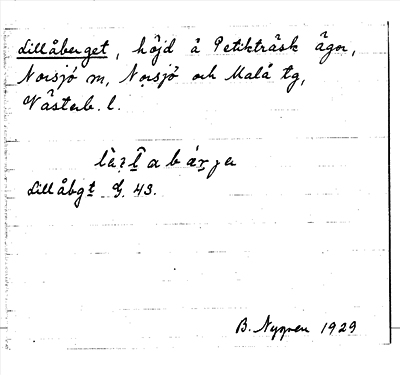 Lillåberget, höjd å Petikträsk ägor,
Norsjö sn, Norsjö och Malå tg,
Västerb. l.
Lillåbgt G. 43.
B. Nygren 1929